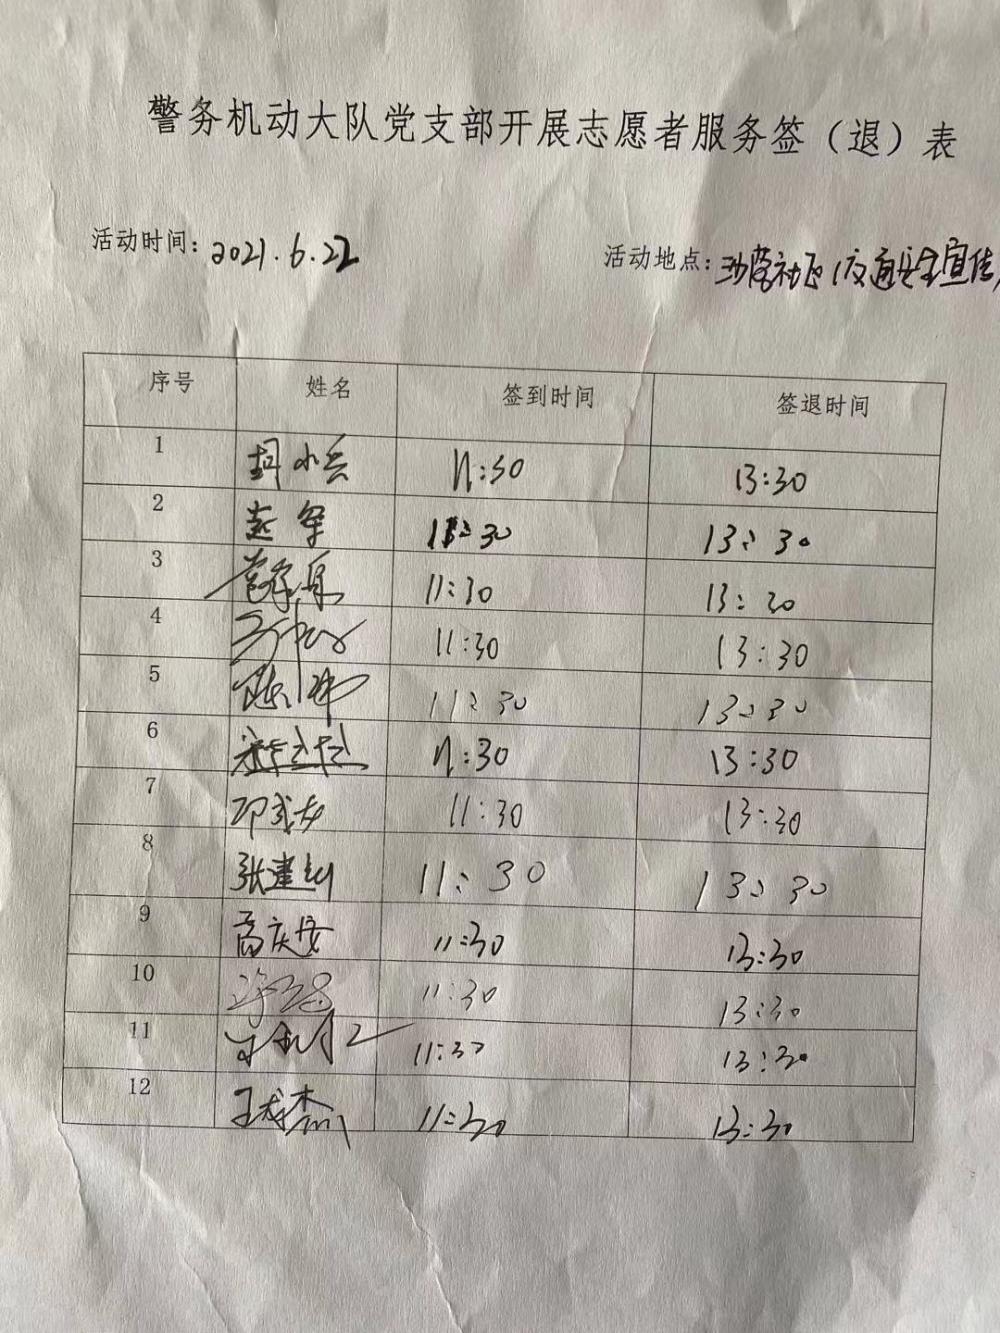 警务机动大队党支部开展志愿者服务签（退）表
活动时间：2021.6.22
活动地点：社区（交通安全宣传）
序号 姓名 签到时间 签退时间
1 小兵 11:30 13:30
2 赵军 11:30 13:30
3 11:30 13:30
4 11:30 13:30
5 陈伟 11:30 13:30
6 11:30 13:30
7 11:30 13:30
8 张建 11:30 13:30
9 高庆安 11:30 13:30
10 11:30 13:30
11 11:30 13:30
12 王龙杰 11:30 13:30